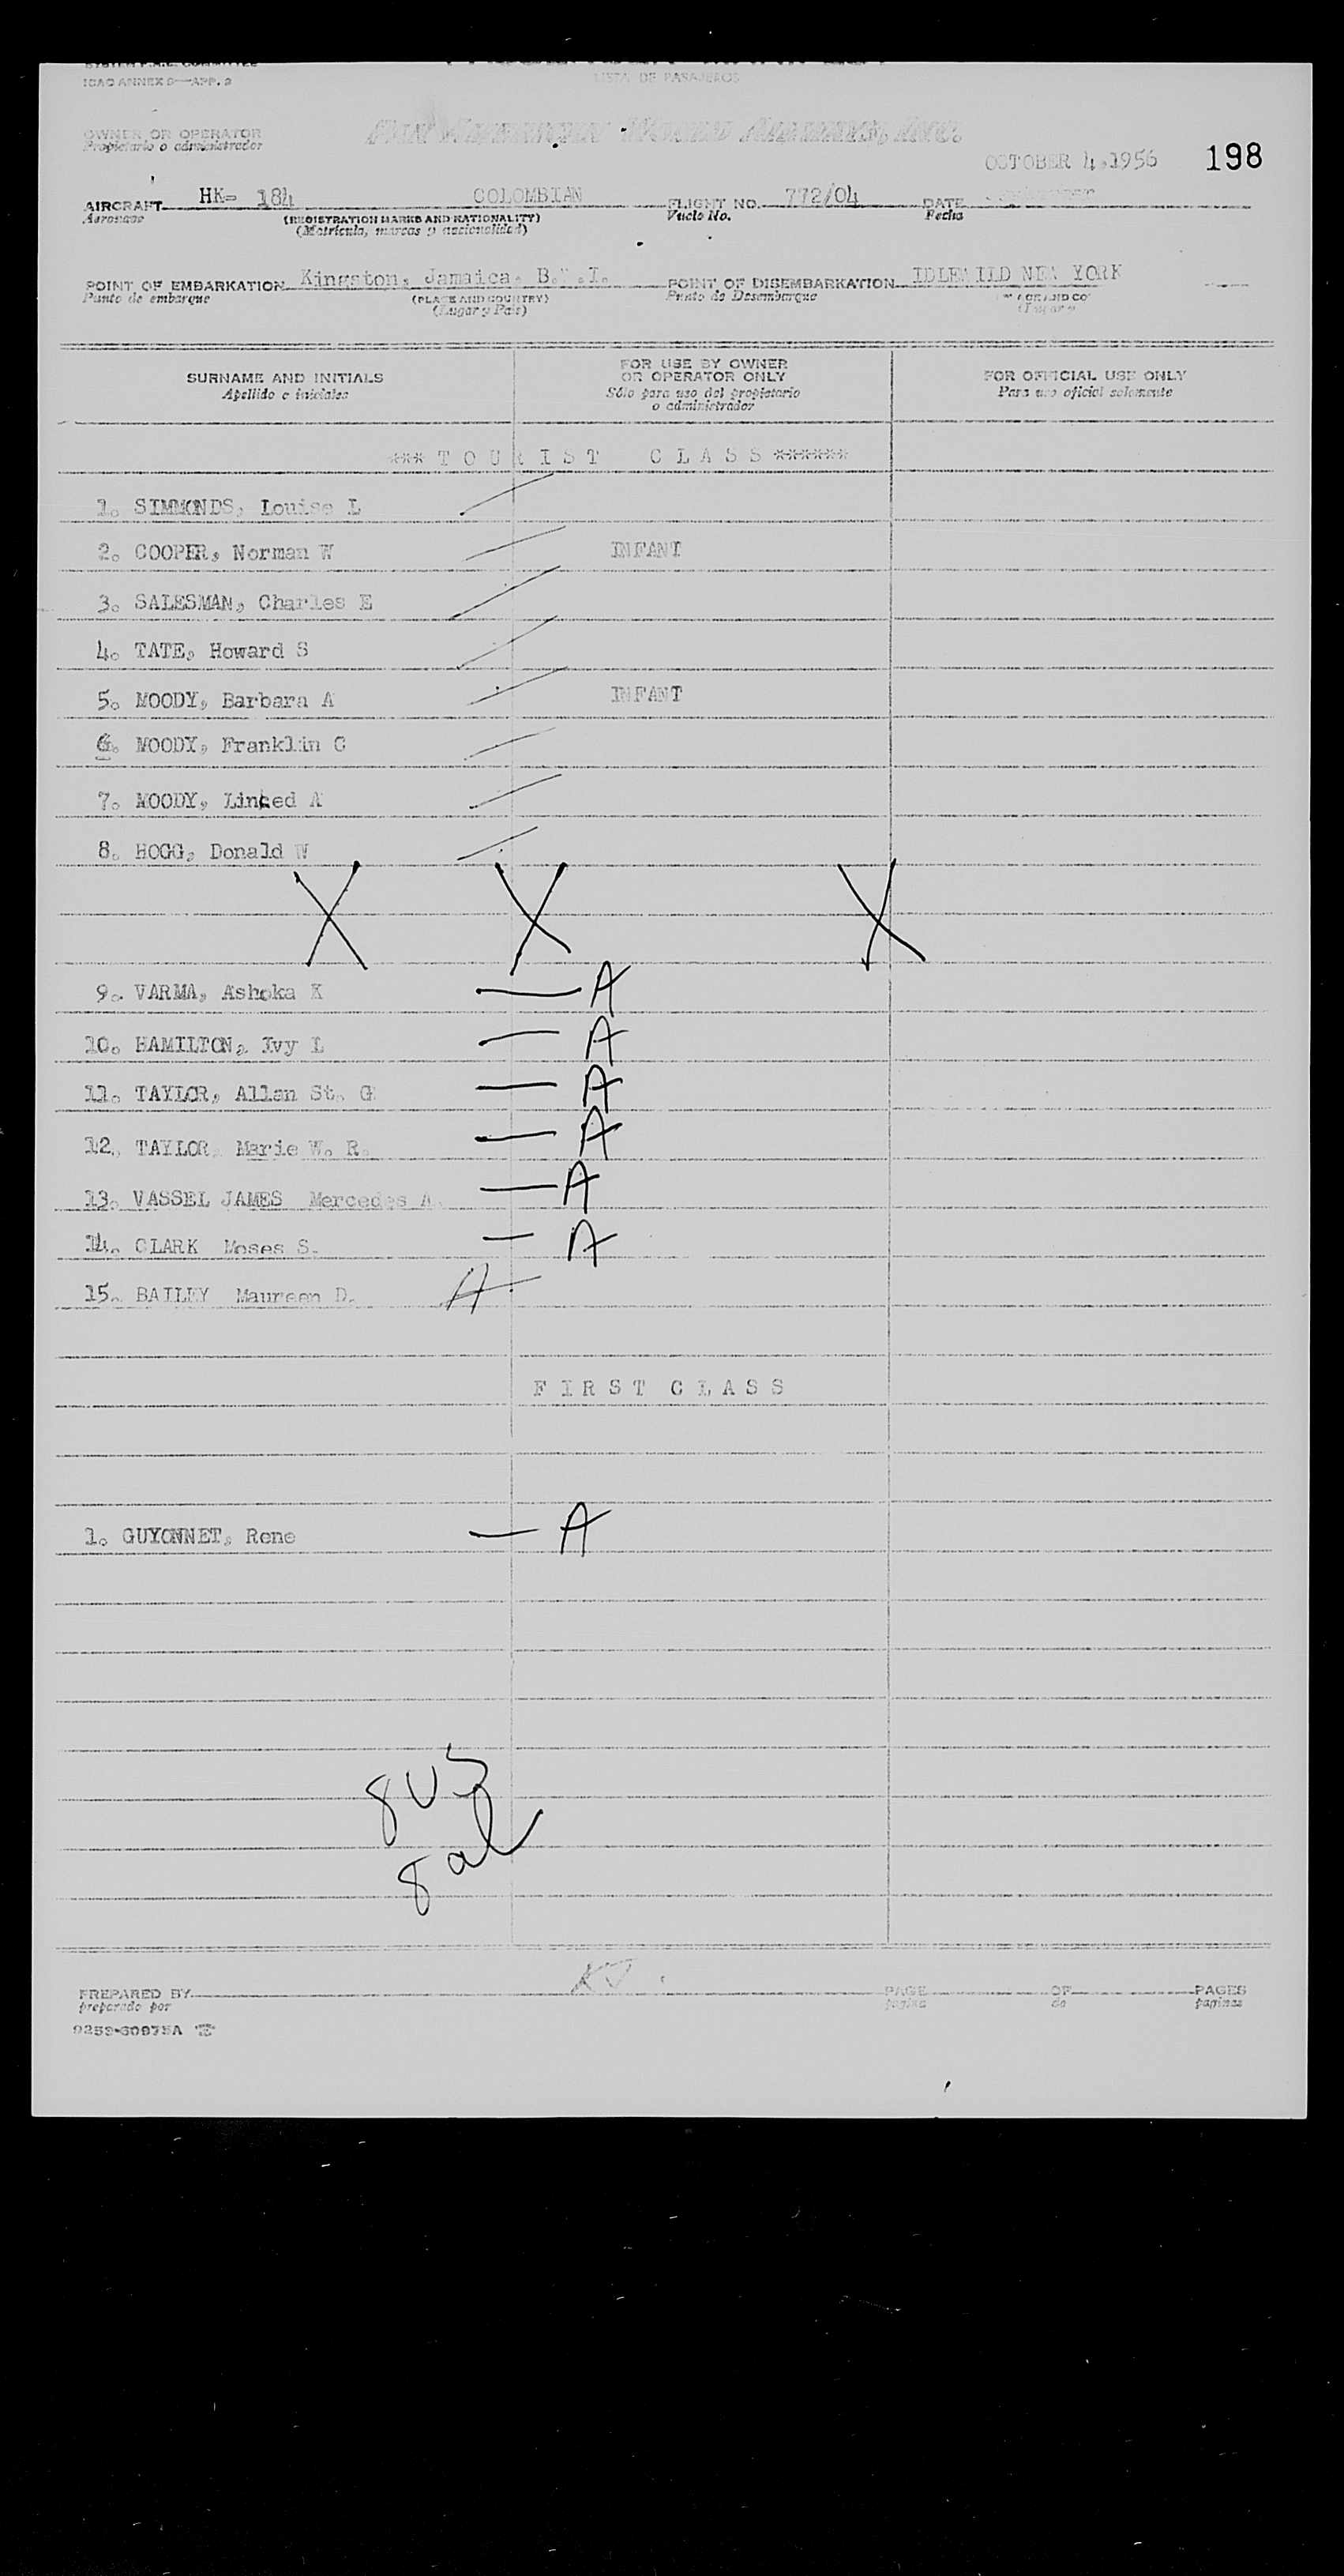 ICAO ANNEX 9—APP. 2
LISTA DE PASAJEROS
OWNER OR OPERATOR
Propietario o administrador
PAN AMERICAN WORLD AIRWAYS, INC.
OCTOBER 4,1956 198
AIRCRAFT HK- 184 COLOMBIAN FLIGHT NO. 772/04 DATE
Aeronave (REGISTRATION MARKS AND NATIONALITY) Vuelo No. Fecha
(Matrícula, marcas y nacionalidad)
POINT OF EMBARKATION Kingston, Jamaica. B.W.I. POINT OF DISEMBARKATION IDLEWILD NEW YORK
Punto de embarque (PLACE AND COUNTRY) Punto de Desembarque
(Lugar y País)
SURNAME AND INITIALS FOR USE BY OWNER OR OPERATOR ONLY FOR OFFICIAL USE ONLY
Apellido e iniciales Sólo para uso del propietario o administrador Para uso oficial solamente
*** T O U R I S T C L A S S ******
1. SIMMONDS, Louise L
2. COOPER, Norman W INFANT
3. SALESMAN, Charles E
4. TATE, Howard S
5. MOODY, Barbara A INFANT
6. MOODY, Franklin C
7. MOODY, A
8. HOGG, Donald W
X X X
9. VARMA, Ashoka K — A
10. HAMILTON, Ivy L — A
11. TAYLOR, Allan St. G — A
12. TAYLOR, Marie W. R. — A
13. VASSEL JAMES Mercedes A. — A
14. CLARK Moses S. — A
15. BAILEY Maureen D. A
F I R S T C L A S S
1. GUYONNET, Rene — A
8 US
8 al
KJ.
PREPARED BY PAGE OF PAGES
preparado por página de páginas
9253-60975A